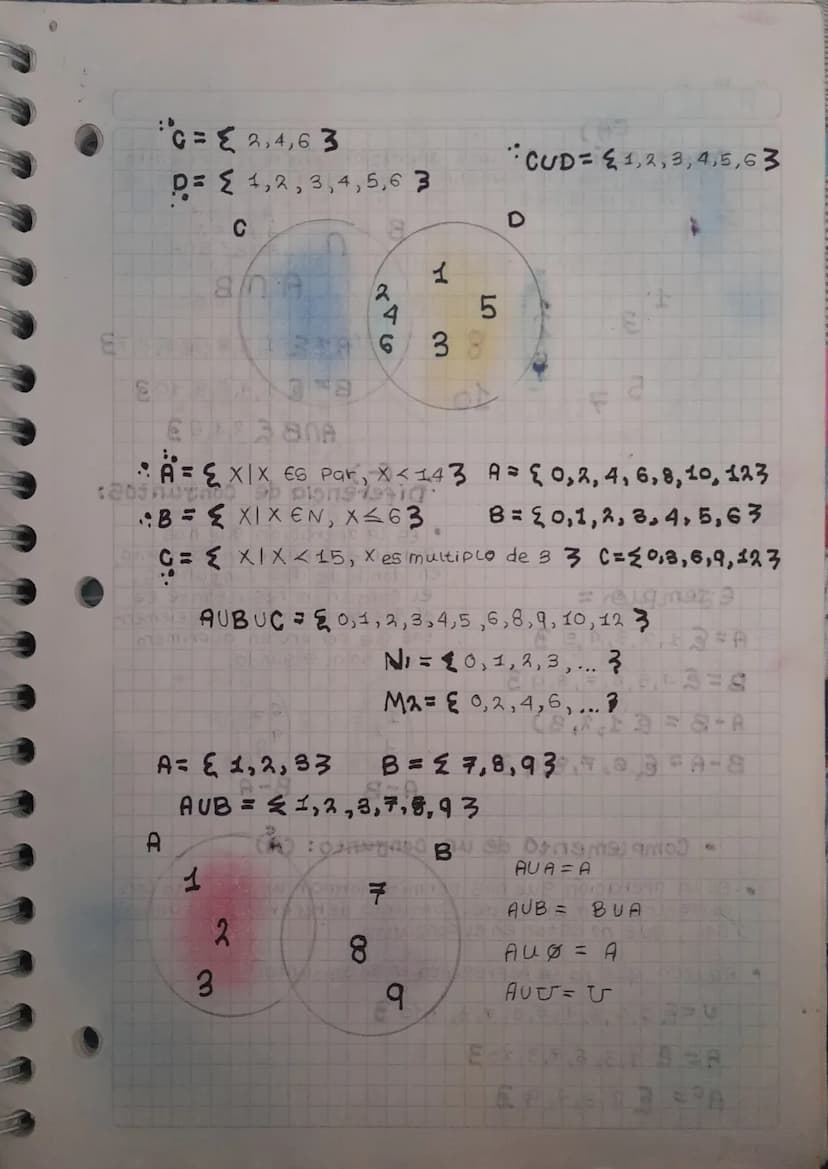 ∴ C = { 2,4,6 }
∴ CUD = { 1,2,3,4,5,6 }
D = { 1,2,3,4,5,6 }
C
D
1
2
4
5
6
3
∴ A = { X|X ES Par, X < 14 } A = { 0,2,4,6,8,10,12 }
∴ B = { X|X ∈ N, X ≤ 6 } B = { 0,1,2,3,4,5,6 }
C = { X|X < 15, X es multiplo de 3 } C = { 0,3,6,9,12 }
AUBUC = { 0,1,2,3,4,5,6,8,9,10,12 }
N1 = { 0,1,2,3,... }
M2 = { 0,2,4,6,... }
A = { 1,2,3 } B = { 7,8,9 }
AUB = { 1,2,3,7,8,9 }
A
B
1
7
2
8
3
9
AUA = A
AUB = BUA
AUØ = A
AUU = U